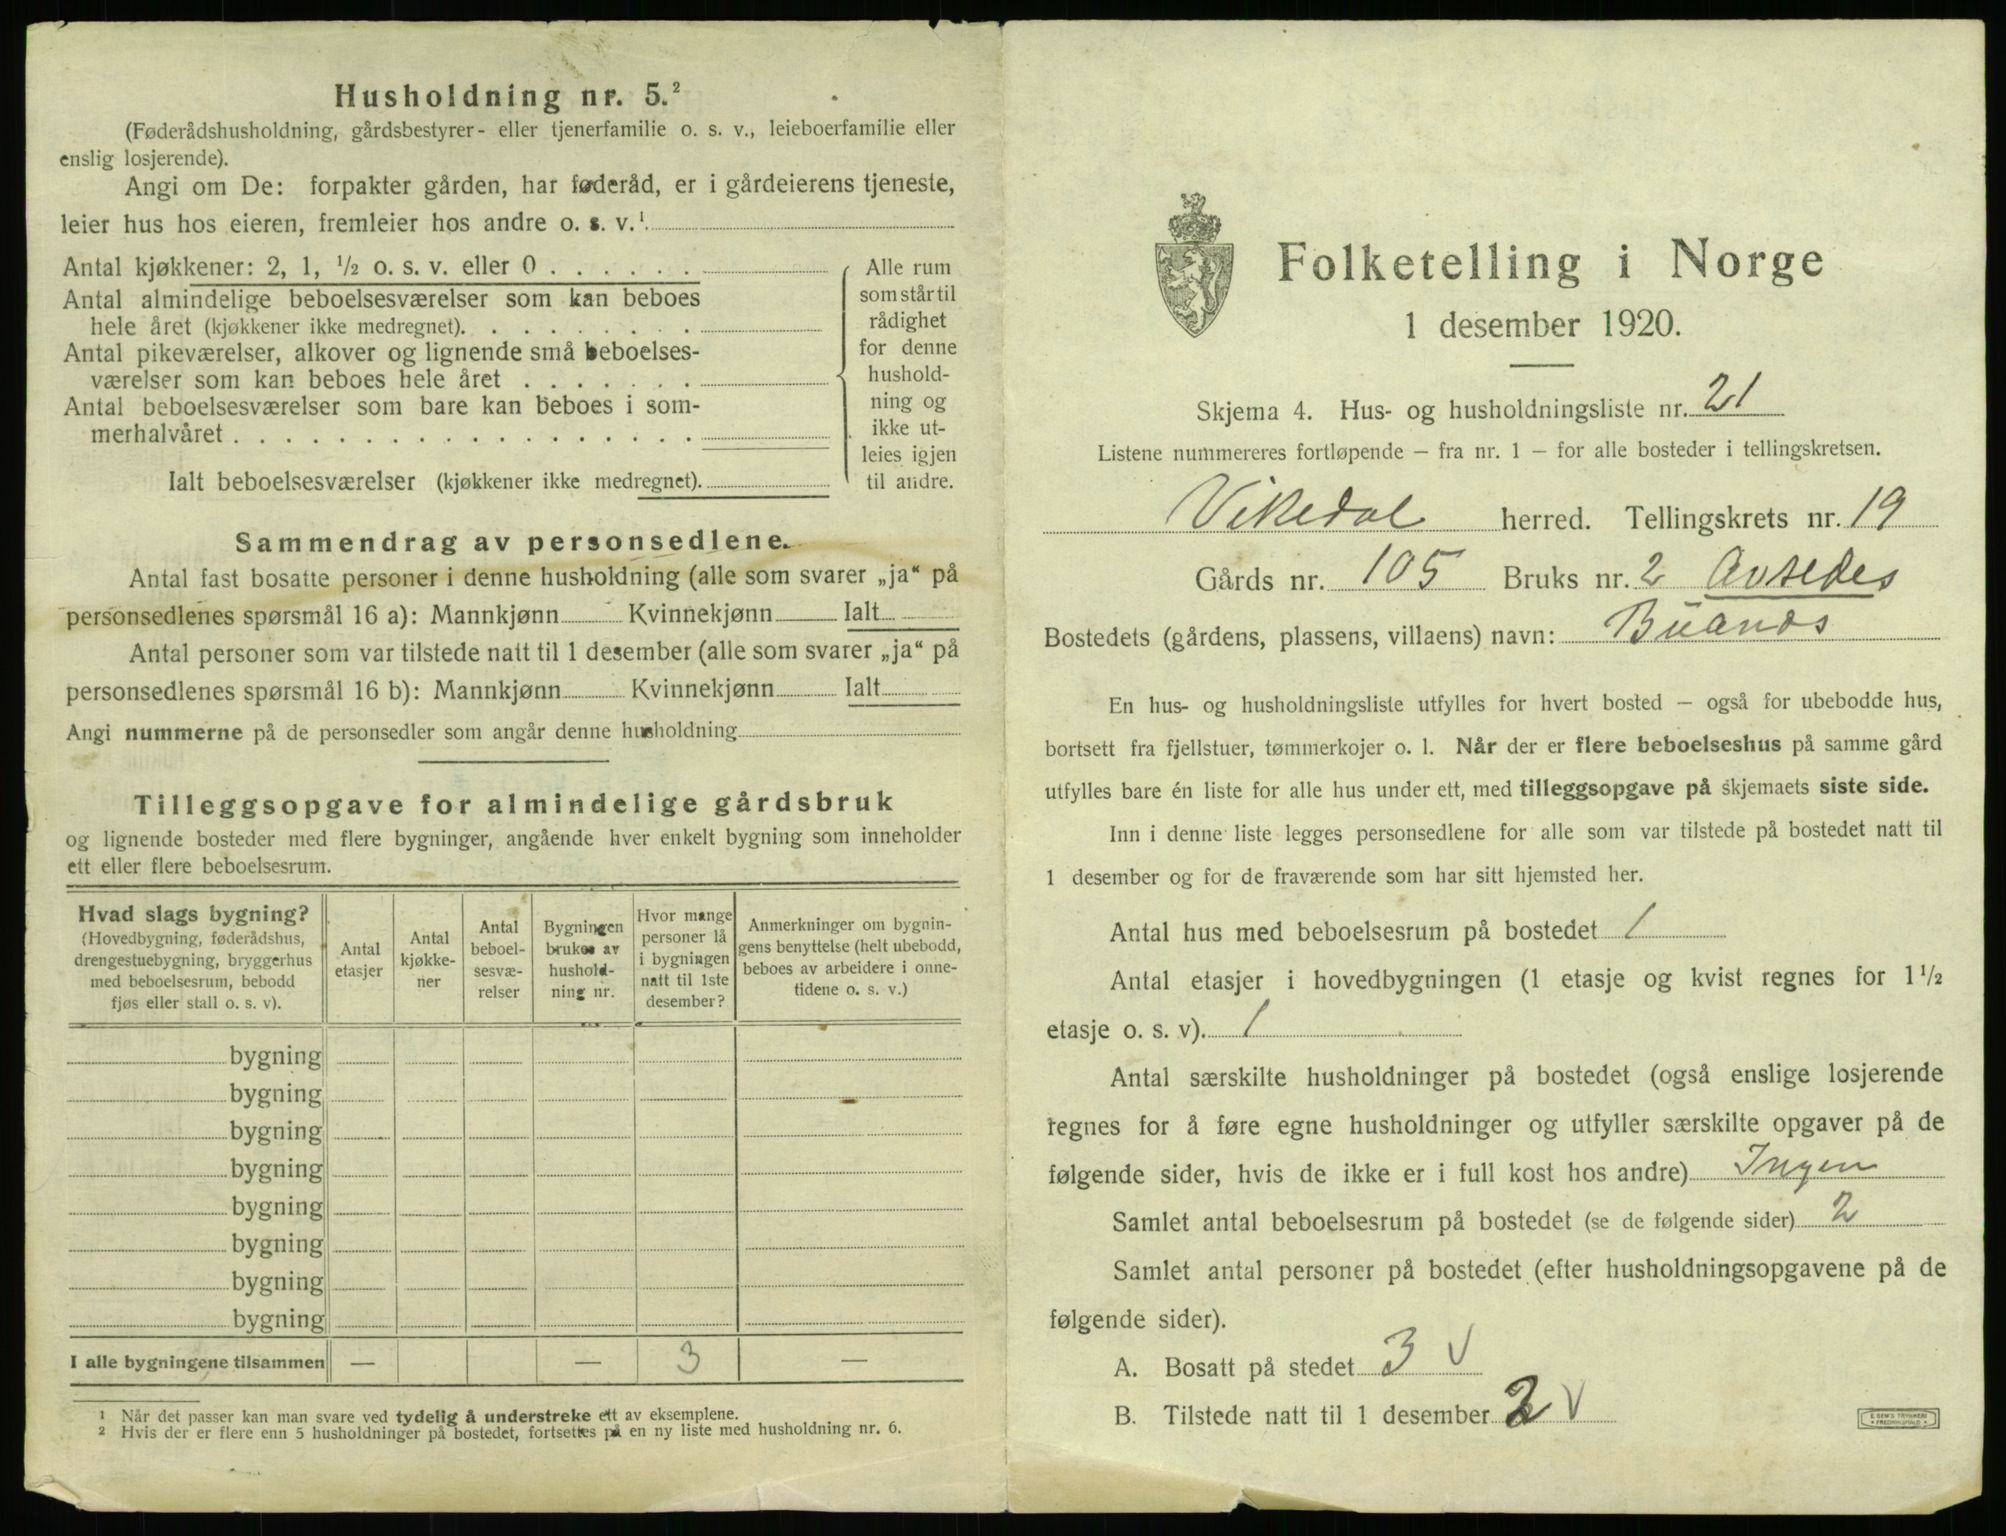 Husholdning nr. 5.²
(Føderådshusholdning, gårdsbestyrer- eller tjenerfamilie o. s. v., leieboerfamilie eller
enslig losjerende).
Angi om De: forpakter gården, har føderåd, er i gårdeierens tjeneste,
leier hus hos eieren, fremleier hos andre o. s. v.¹
Antal kjøkkener: 2, 1, ½ o. s. v. eller 0 . . . . . .
Antal almindelige beboelsesværelser som kan beboes
hele året (kjøkkener ikke medregnet). . . . . . . . .
Antal pikeværelser, alkover og lignende små beboelses-
værelser som kan beboes hele året . . . . . . .
Antal beboelsesværelser som bare kan beboes i som-
merhalvåret . . . . . . . . . . . . . . . . . .
Ialt beboelsesværelser (kjøkkener ikke medregnet).
Alle rum
som står til
rådighet
for denne
hushold-
ning og
ikke ut-
leies igjen
til andre.
Sammendrag av personsedlene.
Antal fast bosatte personer i denne husholdning (alle som svarer „ja“ på
personsedlenes spørsmål 16 a): Mannkjønn Kvinnekjønn Ialt
Antal personer som var tilstede natt til 1 desember (alle som svarer „ja“ på
personsedlenes spørsmål 16 b): Mannkjønn Kvinnekjønn Ialt
Angi nummerne på de personsedler som angår denne husholdning
Tilleggsopgave for almindelige gårdsbruk
og lignende bosteder med flere bygninger, angående hver enkelt bygning som inneholder
ett eller flere beboelsesrum.
Hvad slags bygning?
(Hovedbygning, føderådshus,
drengestuebygning, bryggerhus
med beboelsesrum, bebodd
fjøs eller stall o. s. v).
Antal
etasjer
Antal
kjøkke-
ner
Antal
beboel-
sesvæ-
relser
Bygningen
brukes av
hushold-
ning nr.
Hvor mange
personer lå
i bygningen
natt til 1ste
desember?
Anmerkninger om bygnin-
gens benyttelse (helt ubebodd,
beboes av arbeidere i onne-
tidene o. s. v.)
bygning
bygning
bygning
bygning
bygning
bygning
bygning
bygning
I alle bygningene tilsammen — — 3 —
¹ Når det passer kan man svare ved tydelig å understreke ett av eksemplene.
² Hvis der er flere enn 5 husholdninger på bostedet, fortsettes på en ny liste med husholdning nr. 6.
Folketelling i Norge
1 desember 1920.
Skjema 4. Hus- og husholdningsliste nr. 21
Listene nummereres fortløpende – fra nr. 1 – for alle bosteder i tellingskretsen.
Vikedal herred. Tellingskrets nr. 19
Gårds nr. 105 Bruks nr. 2 Avsedes
Bostedets (gårdens, plassens, villaens) navn: Buanøs
En hus- og husholdningsliste utfylles for hvert bosted – også for ubebodde hus,
bortsett fra fjellstuer, tømmerkojer o. l. Når der er flere beboelseshus på samme gård
utfylles bare én liste for alle hus under ett, med tilleggsopgave på skjemaets siste side.
Inn i denne liste legges personsedlene for alle som var tilstede på bostedet natt til
1 desember og for de fraværende som har sitt hjemsted her.
Antal hus med beboelsesrum på bostedet 1
Antal etasjer i hovedbygningen (1 etasje og kvist regnes for 1½
etasje o. s. v). 1
Antal særskilte husholdninger på bostedet (også enslige losjerende
regnes for å føre egne husholdninger og utfyller særskilte opgaver på de
følgende sider, hvis de ikke er i full kost hos andre) Ingen
Samlet antal beboelsesrum på bostedet (se de følgende sider) 2
Samlet antal personer på bostedet (efter husholdningsopgavene på de
følgende sider).
A. Bosatt på stedet 3 v
B. Tilstede natt til 1 desember 2 v
E. SEM'S TRYKKERI
FREDRIKSHALD